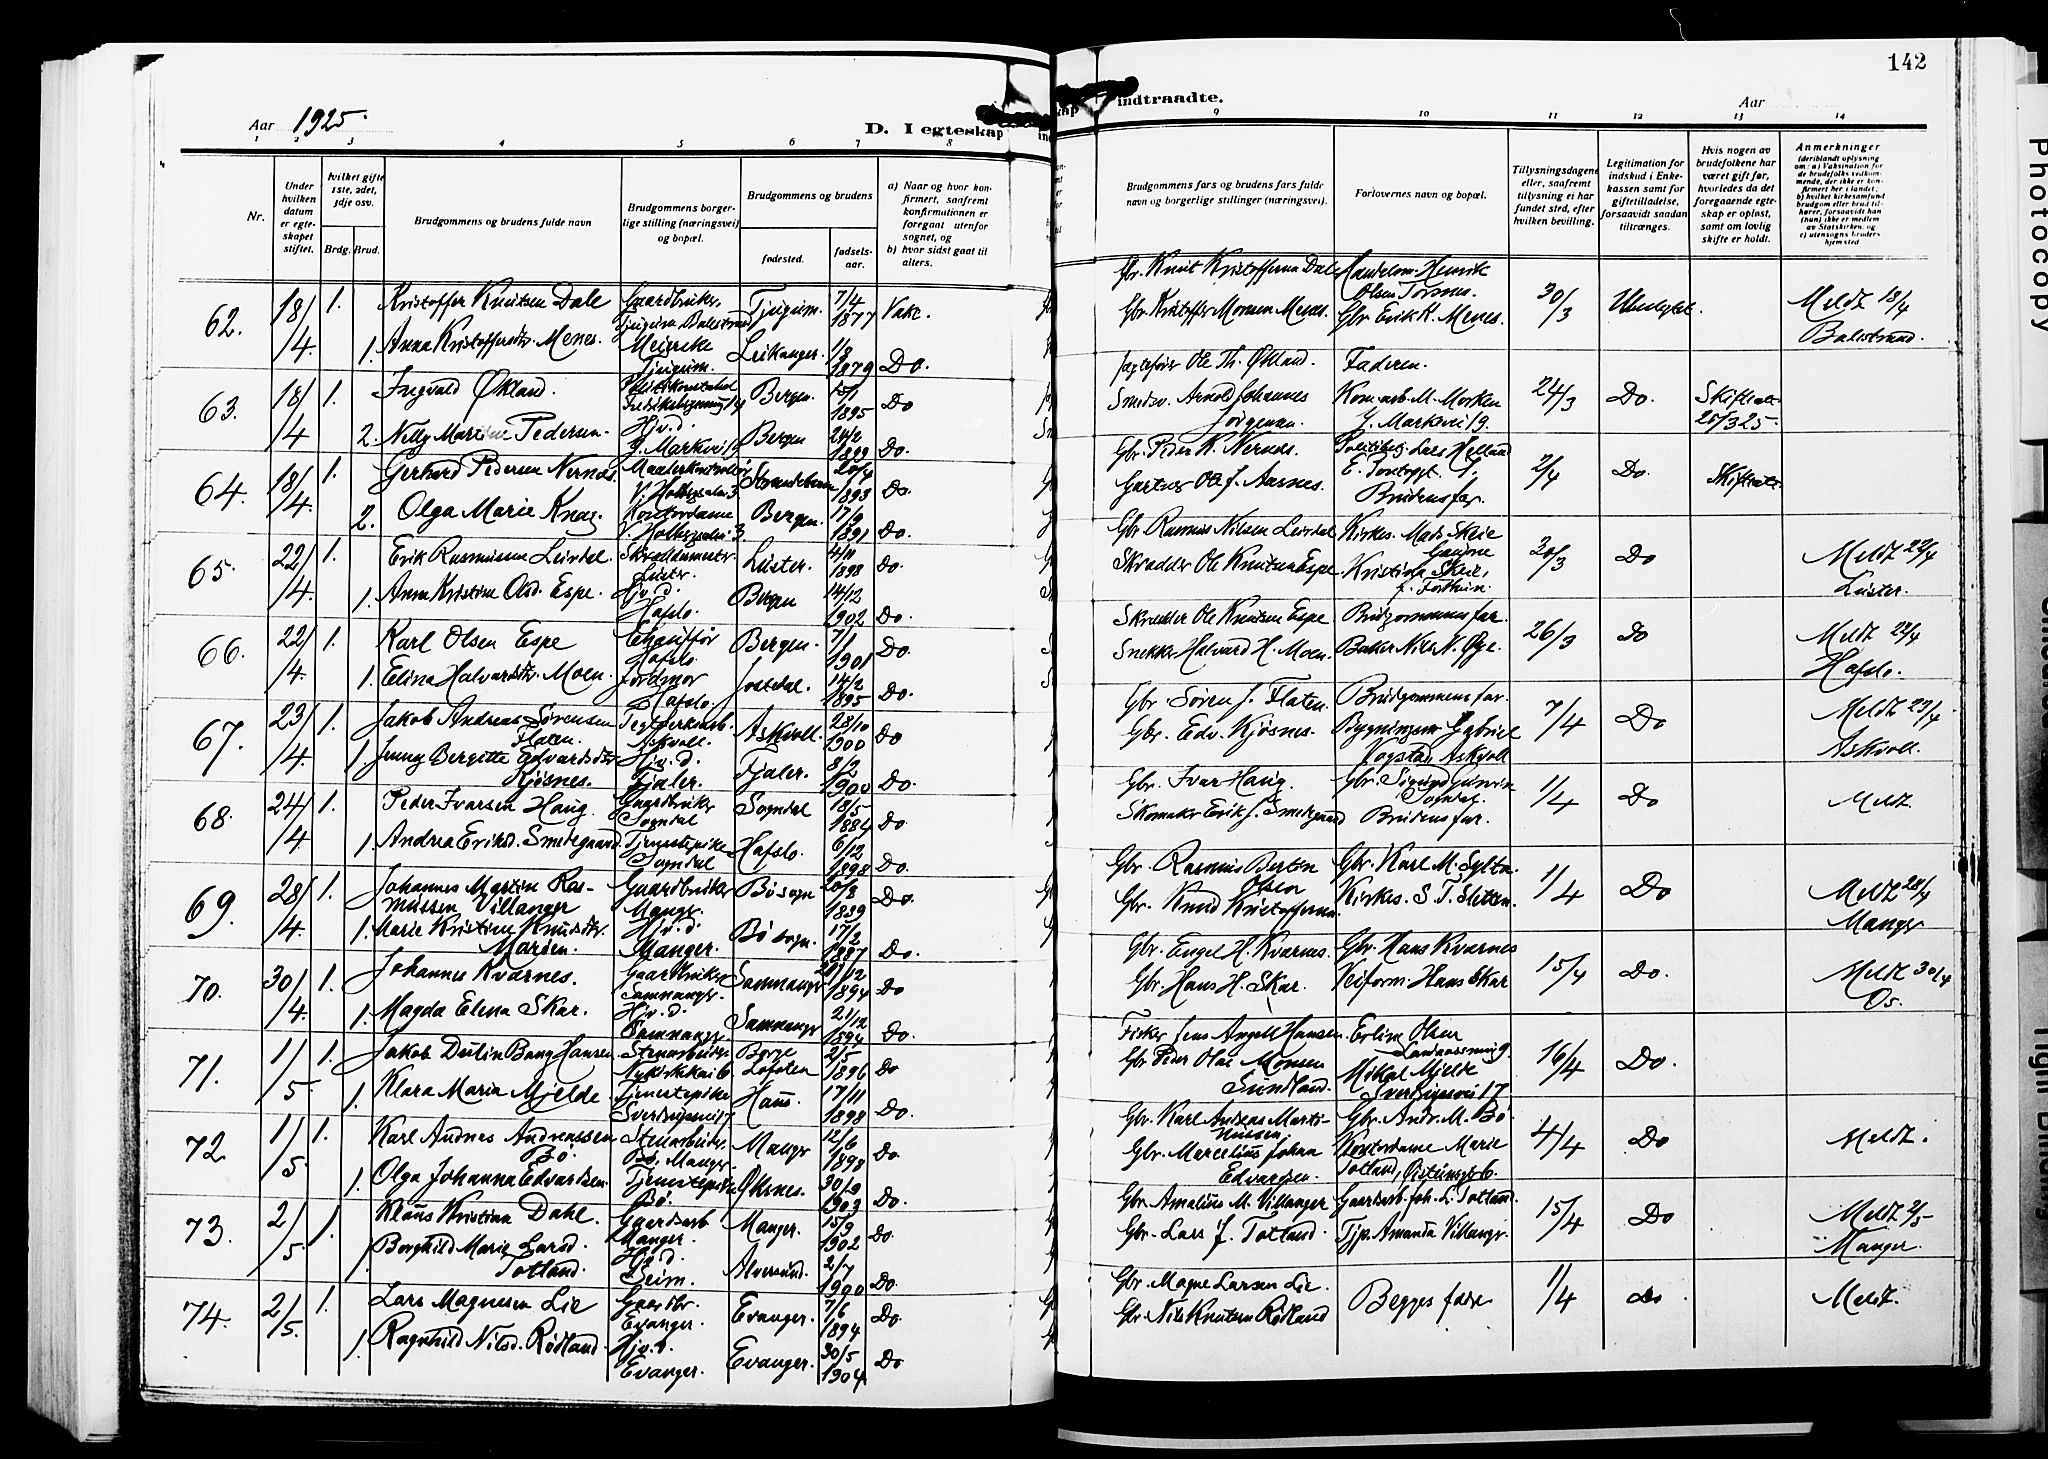 142
Aar 1925.
D. I egteskap
indtraadte.
Aar
1 2 3 4 5 6 7 8 9 10 11 12 13 14
Nr.
Under hvilken datum er egteskapet stiftet.
hvilket gifte 1ste, 2det, 3dje osv.
Brdg. Brud.
Brudgommens og brudens fulde navn
Brudgommens borgerlige stilling (næringsvei) og bopæl.
Brudgommens og brudens
fødested.
fødselsaar.
a) Naar og hvor konfirmert, saafremt konfirmationen er foregaaet utenfor sognet, og
b) hvor sidst gaat til alters.
Brudgommens fars og brudens fars fulde navn og borgerlige stillinger (næringsvei).
Forlovernes navn og bopæl.
Tillysningsdagene eller, saafremt tillysning ei har fundet sted, efter hvilken bevilling.
Legitimation for indskud i Enkekassen samt for giftetilladelse, forsaavidt saadan tiltrænges.
Hvis nogen av brudefolkene har været gift før, hvorledes da det foregaaende egteskap er opløst, samt om lovlig skifte er holdt.
Anmerkninger
62. 18/4. 1. Kristoffer Knutsen Dale Gaardbruker, Tjugum Balestrand Tjugum. 7/4 1877 Vake. Gbr. Knut Kristoffersen Dale Handelsm. Henrik Olsen 30/3 Meldt 18/4 Balestrand
1. Anna Kristoffersdtr. Menes. Meierske Tjugum. Leikanger. 1/8 1879 Do. Gbr. Kristoffer Monsen Menes. Gbr. Erik K. Menes.
63. 18/4 1. Ingvald Økland. Politikonstabel Bergen. 1895 Do Ole Th. Økland. Faderen. 24/3 Do. Skifteatt. 25/3 25.
2. Nelly Martine Pedersen. Hjv. d. Bergen 24/2 1899 Do. Smedsv. Arnold Johannes Jørgensen. M. Morken
64. 18/4. 1. Gerhard Pedersen Nernes. V. Holbergsalm. 3 Strandebarm 20/4 1893 Do Gbr. Peder K. Nernes. Politibetj. Lars Helland 2/4 Do. Skifteatt.
2. Olga Marie Knag. Kontordame V. Holbergsalm. 3. Bergen. 17/9 1891 Do. Gartner Ole J. Aarnes. Brudens far.
65. 22/4. 1. Erik Rasmussen Leirdal Skreddermester. Luster. Luster. 4/11 1898 Do. Gbr. Rasmus Nilsen Leirdal Kirkes. Mads Skeie Gaupne 20/3 Do Meldt 22/4 Luster.
1. Anna Kristine Olsd. Espe. Hjv. d. Hafslo. Bergen 14/12 1902 Do. Skrædder Ole Knutsen Espe Kristina Skeie,
66. 22/4. 1. Karl Olsen Espe Chauffør Hafslo. Bergen. 7/1 1901 Do. Skredder Ole Knutsen Espe Brudgommens far. 26/3 Do Meldt 22/4 Hafslo.
1. Elina Halvardsdtr. Moen. Jordmor Hafslo. Jostedal. 14/2 1895 Do. Snekker Halvard H. Moen. Baker Nils N. Øye.
67. 23/4. 1. Jakob Andreas Sørensen Flaten. Teglverksarb. Askvoll. Askvoll. 28/10 1900 Do Gbr. Søren J. Flaten. Brudgommens far. 7/4 Do Meldt 23/4 Askvoll.
1. Jenny Bergitte Edvardsdtr Kjøsnes. Hjv. d. Fjaler. Fjaler. 8/2 1900 Do. Gbr. Edv. Kjøsnes. Bygningssn. Gabriel Vogstad, Askvoll
68. 24/4 1. Peder Ivarsen Haug. Gaardbruker Sogndal Sogndal 18/5 1884 Do Gbr. Ivar Haug. Gbr. Sigurd Sogndal. 1/4 Do Meldt.
1. Andrea Eriksd. Smedegaard Tjenestepike Sogndal Hafslo. 6/12 1898 Do. Skomaker Erik J. Smedegaard Brudens far.
69. 28/4. 1. Johannes Martin Rasmussen Villanger Gaardbruker Manger. Bø sogn 20/8 1889 Do. Gbr. Rasmus Berten Olsen Gbr. Karl M. Sylta. 1/4 Do Meldt 28/4 Manger
1. Marie Kristine Knudsdtr. Marøen. Hjv. d. Manger. Bø sogn. 17/2 1887 Do. Gbr. Knud Kristoffersen. Kirkes. S. T. Sletten.
70. 30/4. 1. Johannes Kvarnes. Gaardbruker Samnanger. Samnanger 1894 Do Gbr. Engel H. Kvarnes. Gbr. Hans Kvarnes 15/4 Do. Meldt 30/4 Os.
1. Magda Elena Skar. Hjv. d. Samnanger. Samnanger 21/12 1894 Do. Gbr. Hans H. Skar. Veiform. Hans Skar
71. 1/5 1. Jakob Dulin Bang Hansen Stenarbeider. Nykirkekai 6 Borge Lofoten 2/5 1896 Do Fisker Jens Angell Hansen. Erling Olsen 16/4 Do.
1. Klara Maria Mjelde. Tjenestepike Sverdrupsvei 17 Haus. 17/11 1898 Do. Gbr. Peder Olai Monsen Sundland. Mikal Mjelde Sverdrupsvei 17
72. 1/5 1. Karl Andreas Andreassen Bø. Stenarbeider. Bø. Manger. Manger 12/6 1898 Do. Gbr. Karl Andreas Gbr. Andr. M. Bø. 4/4 Do Meldt.
1. Olga Johanna Edvardsen Tjenestepike Bø. Øksnes. 30/9 1903 Do. Gbr. Marcelius Johan Edvardsen. Kontordame Marie Totland,
73. 2/5 1. Klaus Kristian Dahl. Gaardsarb. Manger. Manger. 15/9 1902 Do. Gbr. Amalius M. Villanger Gaardsarb. Joh. L. Totland. 15/4 Do Meldt 2/5 Manger.
1. Borghild Marie Larsd. Totland. Hjv. d. Seim. Alversund. 2/7 1900 Do. Gbr. Lars J. Totland. Tjp. Amanda Villanger.
74. 2/5. 1. Lars Magnesen Lie Gaardbr. Evanger. Evanger. 7/6 1894 Do Gbr. Magne Larsen Lie. Begges fædre 1/4 do Meldt.
1. Ragnhild Nilsd. Rødland. Hjv. d. Evanger. Evanger. 30/5 1904 Do Gbr. Nils Knutsen Rødland
Photocopy